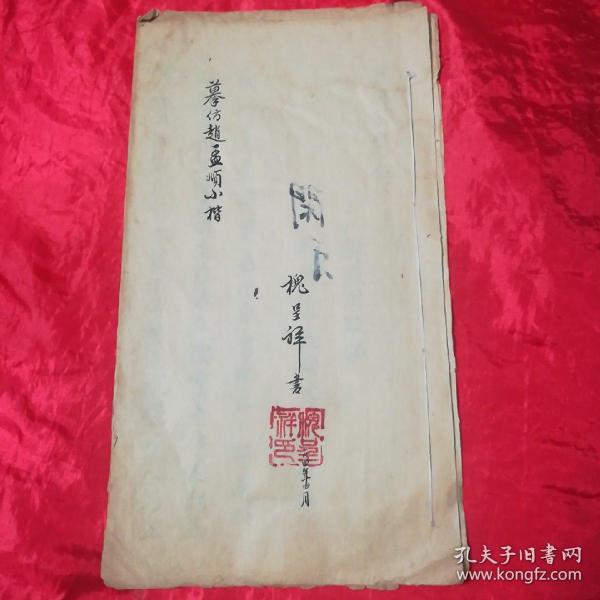 摹仿趙孟順小楷
槐呈祥書
槐呈祥印
年
月
孔夫子旧書网
www.kongfz.com